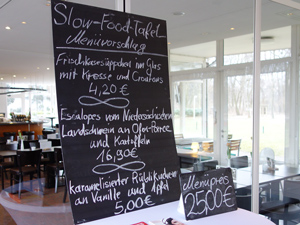 Slow-Food-Tafel
Menüvorschlag
Frischkäsesüppchen im Glas
mit Kresse und Croutons
4,20 €
Escalopes vom Niedersächsischen
Landschwein an
und Kartoffeln
16,90 €
karamelisierter Rüblikuchen
an Vanille und Apfel
5,00 €
Menüpreis
25,00 €